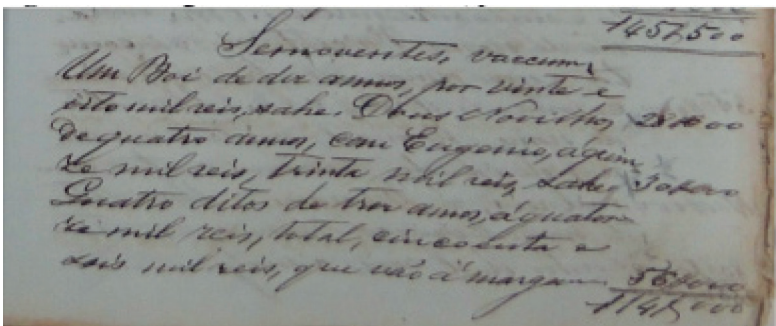 1457,500
Semoventes, vaccum,
Um Boi de dez annos, por vinte e
oito mil reis, sahe. Dous Novilhos 28#000
de quatro annos, com Eugenio, a quin
ze mil reis, trinta mil reis, sahe 30#000
Quatro ditos de tres annos, á quator
ze mil reis, total, cincoenta e
seis mil reis, que vão á margem 56#000